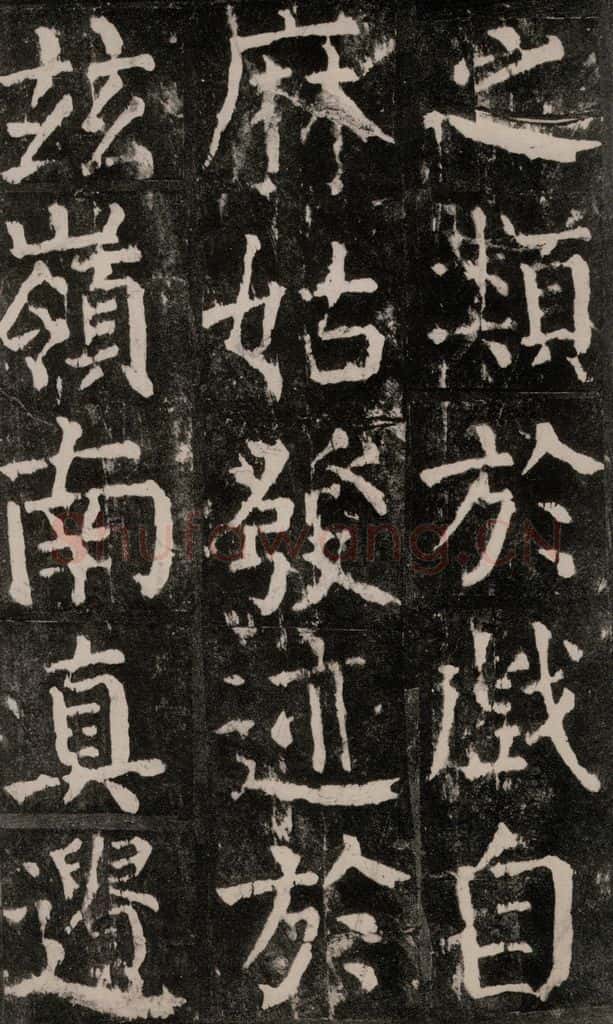 之類於戲自
麻姑發迹於
兹嶺南真遺
Shufawang.CN